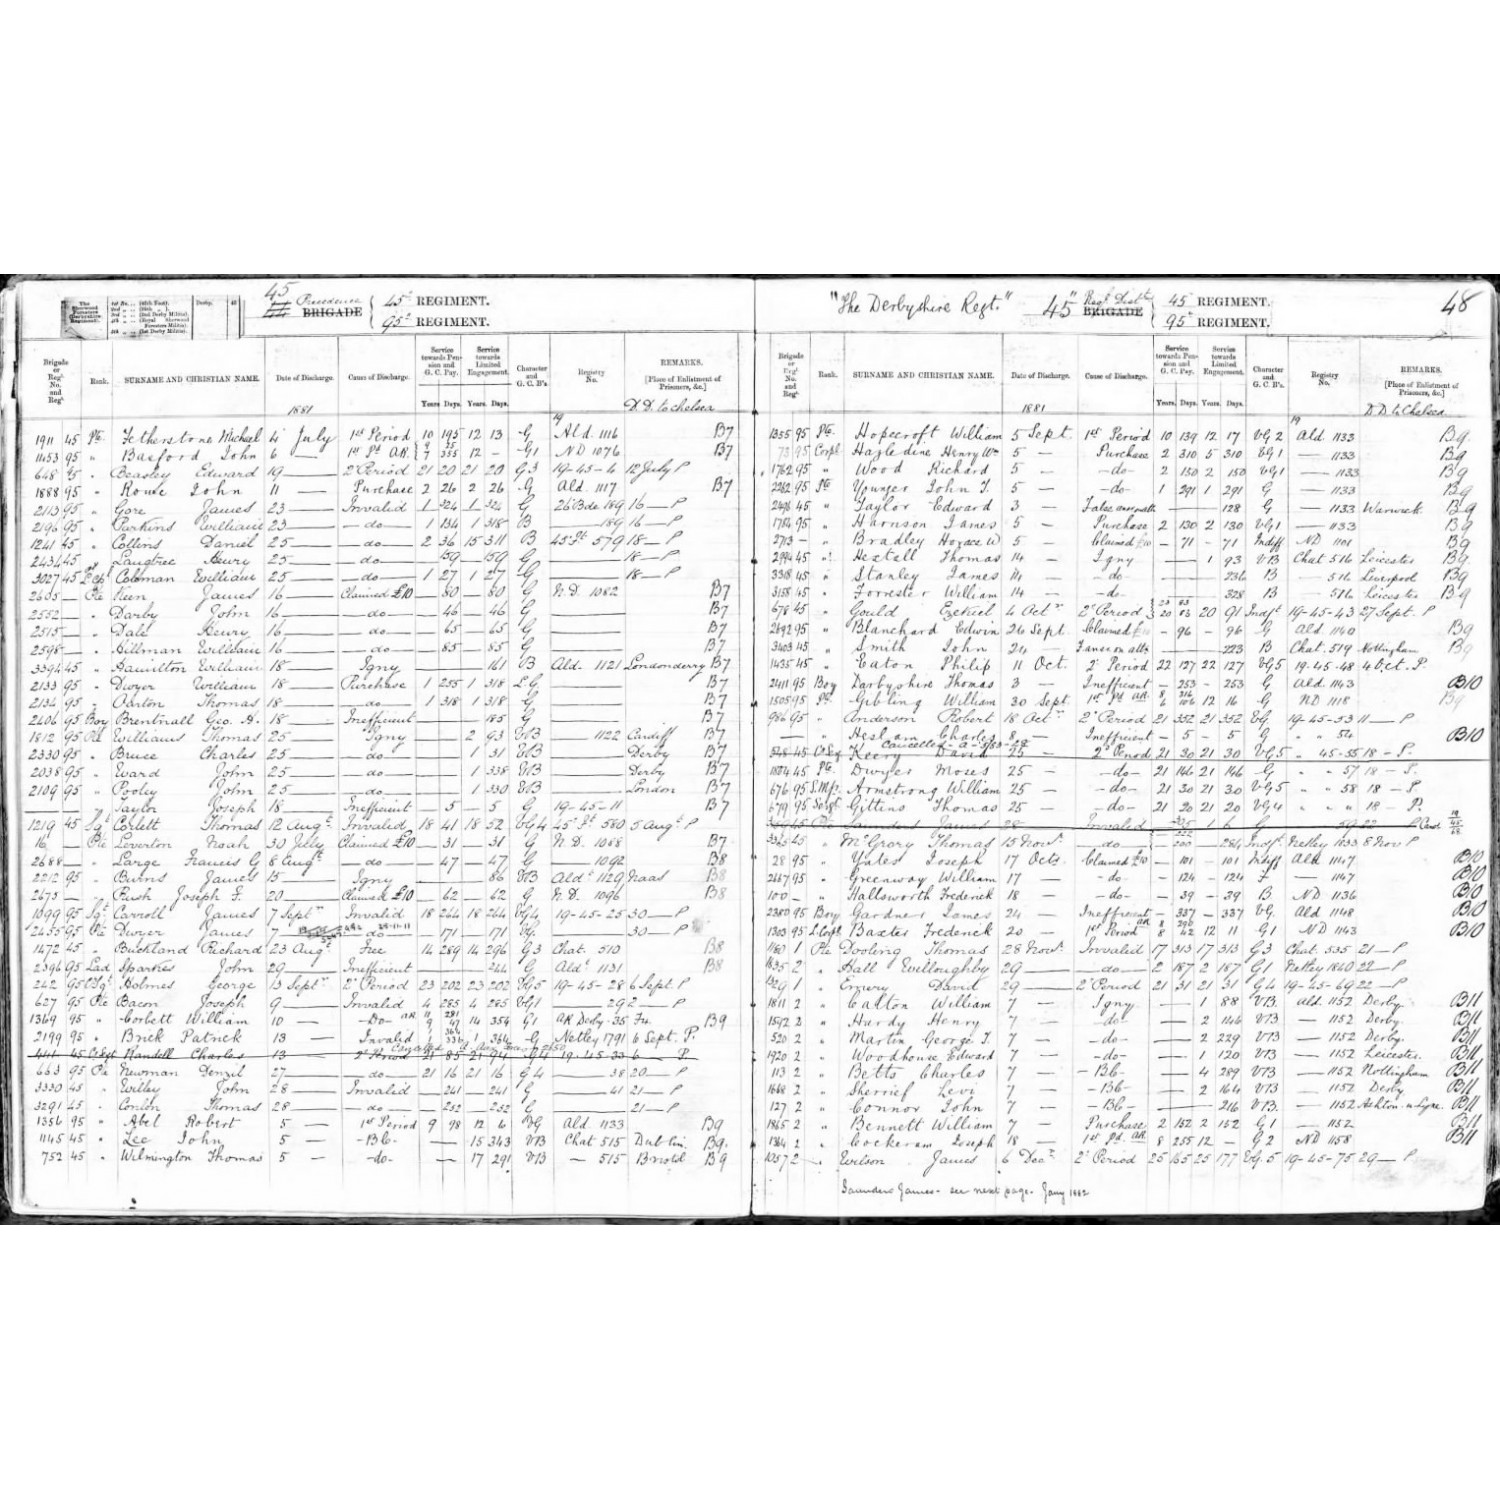 45
Precedence
BRIGADE
45th REGIMENT.
95th REGIMENT.
Brigade or Regtl. No. and Regt.
Rank.
SURNAME AND CHRISTIAN NAME.
Date of Discharge.
Cause of Discharge.
Service towards Pension and G. C. Pay.
Service towards Limited Engagement.
Character and G. C. B's.
Registry No.
REMARKS. [Place of Enlistment of Prisoners, &c.]
Years. Days. Years. Days.
1881
D.D. to Chelsea
1911 45 Pte. Fetherstone Michael 4 July 1st Period 10 195 12 13 G Ald. 1116 B7
1153 95 " Basford John 6 — 1st Pd. A.R. 12 — G1 ND 1076 B7
648 95 " Beasley Edward 19 — 2d Period 21 20 21 20 G3 19-45-4 12 July P
1888 95 " Rouse John 11 — Purchase 2 26 2 26 G Ald. 1117 B7
2113 95 " Gore James 23 — Invalid 1 324 1 324 G 26 Bde 189 16 — P
2196 95 " Parkins William 23 — do — 1 134 1 318 B — 189 16 — P
1241 45 " Collins Daniel 25 — do — 2 36 15 311 B 45 Pt 579 18 — P
2434 45 " Langtree Henry 25 — do — 159 — 159 G — 18 — P
3027 45 L Cpl Coloman William 25 — do — 1 27 1 27 G — 18 — P
2605 — Pte Keen James 16 — Claimed £10 — 80 — 80 G N.D. 1082 B7
2552 — " Darby John 16 — do — 46 — 46 G B7
2515 — " Dale Henry 16 — do — 65 — 65 G B7
2598 — " Hillman William 16 — do — 85 — 85 G B7
3394 45 " Hamilton William 18 — Igny — 161 VB Ald. 1121 Londonderry B7
2133 95 " Dwyer William 18 — Purchase 1 255 1 318 L.G. B7
2134 95 " Oarton Thomas 18 — do — 1 318 1 318 G B7
2406 95 Boy Brentnall Geo. H. 18 — Inefficient — 185 G B7
1812 95 Pte Williams Thomas 25 — Igny — 2 93 VB — 1122 Cardiff B7
2330 95 " Bruce Charles 25 — do — 1 31 VB Derby B7
2038 95 " Ward John 25 — do — 1 338 VB Derby B7
2109 95 " Pooley John 25 — do — 1 330 VB London B7
— " Taylor Joseph 18 — Inefficient — 5 — 5 G 19-45-11 B7
1219 45 Sgt Corlett Thomas 12 Augt. Invalid 18 41 18 52 VG4 45 Pt 580 5 Augt. P
16 — Pte Leverton Noah 30 July Claimed £10 — 31 — 31 G N.D. 1088 B7
2688 — " Large Francis G 8 Augt — do — 47 — 47 G — 1092 B8
2212 95 " Burns James 15 — Igny — 86 VB Ald. 1129 Naas B8
2673 — " Rush Joseph F. 20 — Claimed £10 — 62 — 62 G N.D. 1096 B8
1099 95 Sgt. Carroll James 7 Septr Invalid 18 264 18 264 VG4 19-45-25 30 — P
2455 95 Pte Dwyer James 7 — do — 171 — 171 VG — 30 — P
1472 45 " Buckland Richard 23 Augt. Free 14 289 14 296 G3 Chat. 510 B8
2396 95 Lad Sparkes John 29 — Inefficient — 244 G Ald. 1131 B8
242 95 Holmes George 13 Septr 2d Period 23 202 23 202 VG5 19-45-28 6 Septr. P
627 95 Pte Bacon Joseph 9 — Invalid 4 285 4 285 VG1 — 29 2 — P
1369 95 " Corbett William 10 — Do — A.R. 14 354 G1 A.R. Derby-35 B9
2199 95 " Brick Patrick 13 — Invalid G Netley 1791 6 Sept. P.
441 45 Cr Sgt Randell Charles 13 2d Period 21 85 21 G4 19-45-33 6 — P
663 95 Pte Newman Denzil 27 — do — 21 16 21 16 G4 — 38 20 — P
3330 45 " Willey John 28 — Invalid — 241 — 241 G — 41 21 — P
3291 45 " Conlon Thomas 28 — do — 252 — 252 G 21 — P
1356 95 " Abel Robert 5 — 1st Period 9 98 12 6 VG Ald. 1133 B9
1145 45 " Lee John 5 — Blo — 15 343 VB Chat 515 Dublin. B9
752 45 " Wilmington Thomas 5 — do — 17 291 VB — 515 Bristol B9
"The Derbyshire Regt."
45th Regl. Distt
BRIGADE
45th REGIMENT.
95th REGIMENT.
48
Brigade or Regtl. No. and Regt.
Rank.
SURNAME AND CHRISTIAN NAME.
Date of Discharge.
Cause of Discharge.
Service towards Pension and G. C. Pay.
Service towards Limited Engagement.
Character and G. C. B's.
Registry No.
REMARKS. [Place of Enlistment of Prisoners, &c.]
Years. Days. Years. Days.
1881
D.D. to Chelsea
1355 95 Pte. Hopcroft William 5 Sept. 1st Period 10 139 12 17 VG 2 Ald 1133 B9
73 95 Corpl. Hazledine Henry Wm 5 — Purchase 2 310 5 310 VG1 — 1133 B9
1762 95 " Wood Richard 5 — do — 2 150 2 150 VG1 — 1133 B9
2262 95 Pte Younger John T. 5 — do — 1 291 1 291 G — 1133 B9
2496 45 " Taylor Edward 3 — — 128 G — 1133 Warwick. B9
1754 95 " Harrison James 5 — Purchase 2 130 2 130 VG1 — 1133 B9
2713 — " Bradley Horace W 5 — Claimed £10 — 71 — 71 Indiff ND 1101 B9
2994 45 " Hextall Thomas 14 — Igny — 1 93 VB Chat 516 Leicester B9
3318 45 " Stanley James 14 — do — 236 B — 516 Liverpool B9
3158 45 " Forrester William 14 — do — 328 B — 516 Leicester B9
678 45 " Gould Ezekiel 4 Octr 2d Period 20 91 Indft 19-45-43 27 Sept. P
2692 95 " Blanchard Edwin 26 Sept. Claimed £10 — 96 — 96 G Ald. 1140 B9
3403 45 " Smith John 24 — — 223 B Chat. 519 Nottingham B9
1435 45 " Eaton Philip 11 Oct. 2d Period 22 127 22 127 VG5 19-45-48 4 Oct. P.
2411 95 Boy Darbyshire Thomas 3 — Inefficient — 253 — 253 G Ald. 1143 B10
1505 95 Pte. Gibling William 30 Sept. 1st Pd A.R. 12 16 G ND 1118 B9
986 95 " Anderson Robert 18 Octr 2d Period 21 352 21 352 VG. 19-45-53 11 — P
— " Hesleam Charles 8 — Inefficient — 5 — 5 G " " 54 B10
548 45 Keery David 25 — 2d Period 21 30 21 30 VG5 " 45-55 18 — P.
1804 45 Pte. Dwyer Moses 25 — do — 21 146 21 146 G " " 57 18 — P.
676 95 S.Mjr. Armstrong William 25 — do — 21 30 21 30 VG5 " " 58 18 — P
679 95 Sergt Gittins Thomas 25 — do — 21 20 21 20 VG4 " " " 18 — P.
45 Pte Saunders James 28 — Invalid G 59 22 — P
3325 45 " McGrory Thomas 15 Novr. — do — 284 Indft. Netley 1833 8 Nov P
28 95 " Yates Joseph 17 Octr. Claimed £10 — 101 — 101 Indiff Ald 1147 B10
2667 95 " Greenway William 17 — do — 124 — 124 F — 1147 B10
100 — " Hallsworth Frederick 18 — do — 39 — 39 B ND 1136 B10
2380 95 Boy Gardner James 24 — Inefficient — 337 — 337 VG. Ald 1148 B10
1303 95 L.Corpl Baxter Frederick 20 — 1st Period A.R. 12 11 G1 ND 1143 B10
1160 1 Pte Dooling Thomas 28 Novr. Invalid 17 313 17 313 G3 Chat. 535 21 — P
1835 2 " Hall Willoughby 29 — do — 2 187 2 187 G1 Netley 1840 22 — P
1329 1 " Emery David 29 — 2d Period 21 31 21 31 G4 19-45-69 22 — P
1811 2 " Calton William 7 — Igny — 1 88 VB. Ald. 1152 Derby. B11
1592 2 " Hardy Henry 7 — do — 2 146 VB — 1152 Derby. B11
520 2 " Martin George T. 7 — do — 2 229 VB — 1152 Derby. B11
1920 2 " Woodhouse Edward 7 — do — 1 120 VB — 1152 Leicester. B11
113 2 " Betts Charles 7 — Blo — 4 289 VB — 1152 Nottingham B11
1668 2 " Sherrief Levi 7 — Blo — 2 164 VB — 1152 Derby B11
127 2 " Connor John 7 — Blo — 216 VB. — 1152 Ashton-u-Lyne. B11
1865 2 " Bennett William 7 — Purchase 2 152 2 152 G1 — 1152 B11
1364 2 " Cockeram Joseph 18 — 1st Pd. A.R. 8 255 12 — G2 ND 1158 B11
1057 2 " Wilson James 6 Decr. 2d Period 25 165 25 177 VG.5 19-45-75 29 — P
Saunders James - see next page - Jany 1882